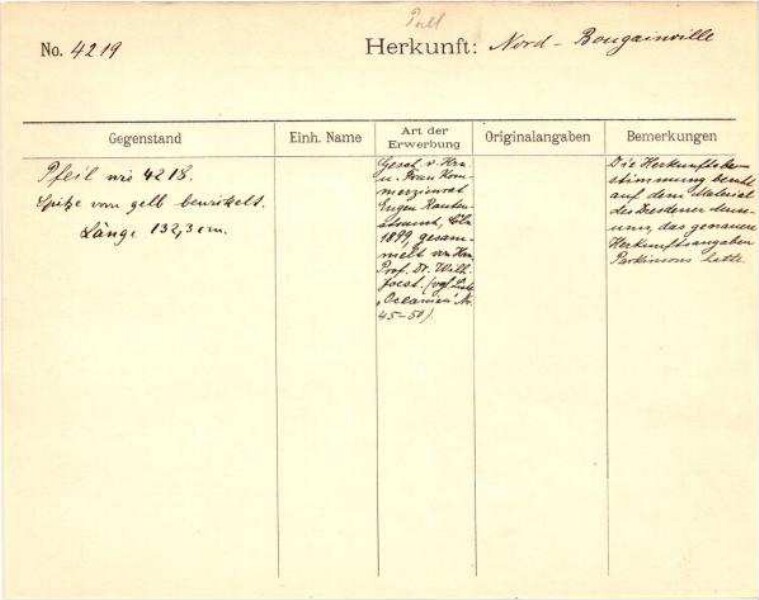 No. 4219
Herkunft: Nord - Bougainville
Gegenstand
Einh. Name
Art der Erwerbung
Originalangaben
Bemerkungen
Pfeil wie 4218.
Spitze vorn gelb bewickelt.
Länge 132,3 cm.
Gesch. v. Hrn
u. Frau Kom-
merzienrat
Eugen Rauten-
strauch, Cöln
1899, gesam-
melt von Hrn
Prof. Dr. Wilh.
Joest. (vgl. Liste
"Oceanien" Nr.
45-50).
Die Herkunftsbe-
stimmung beruht
auf dem Material
des Dresdener Muse-
ums, das genauere
Herkunftsangaben
Parkinsons hatte